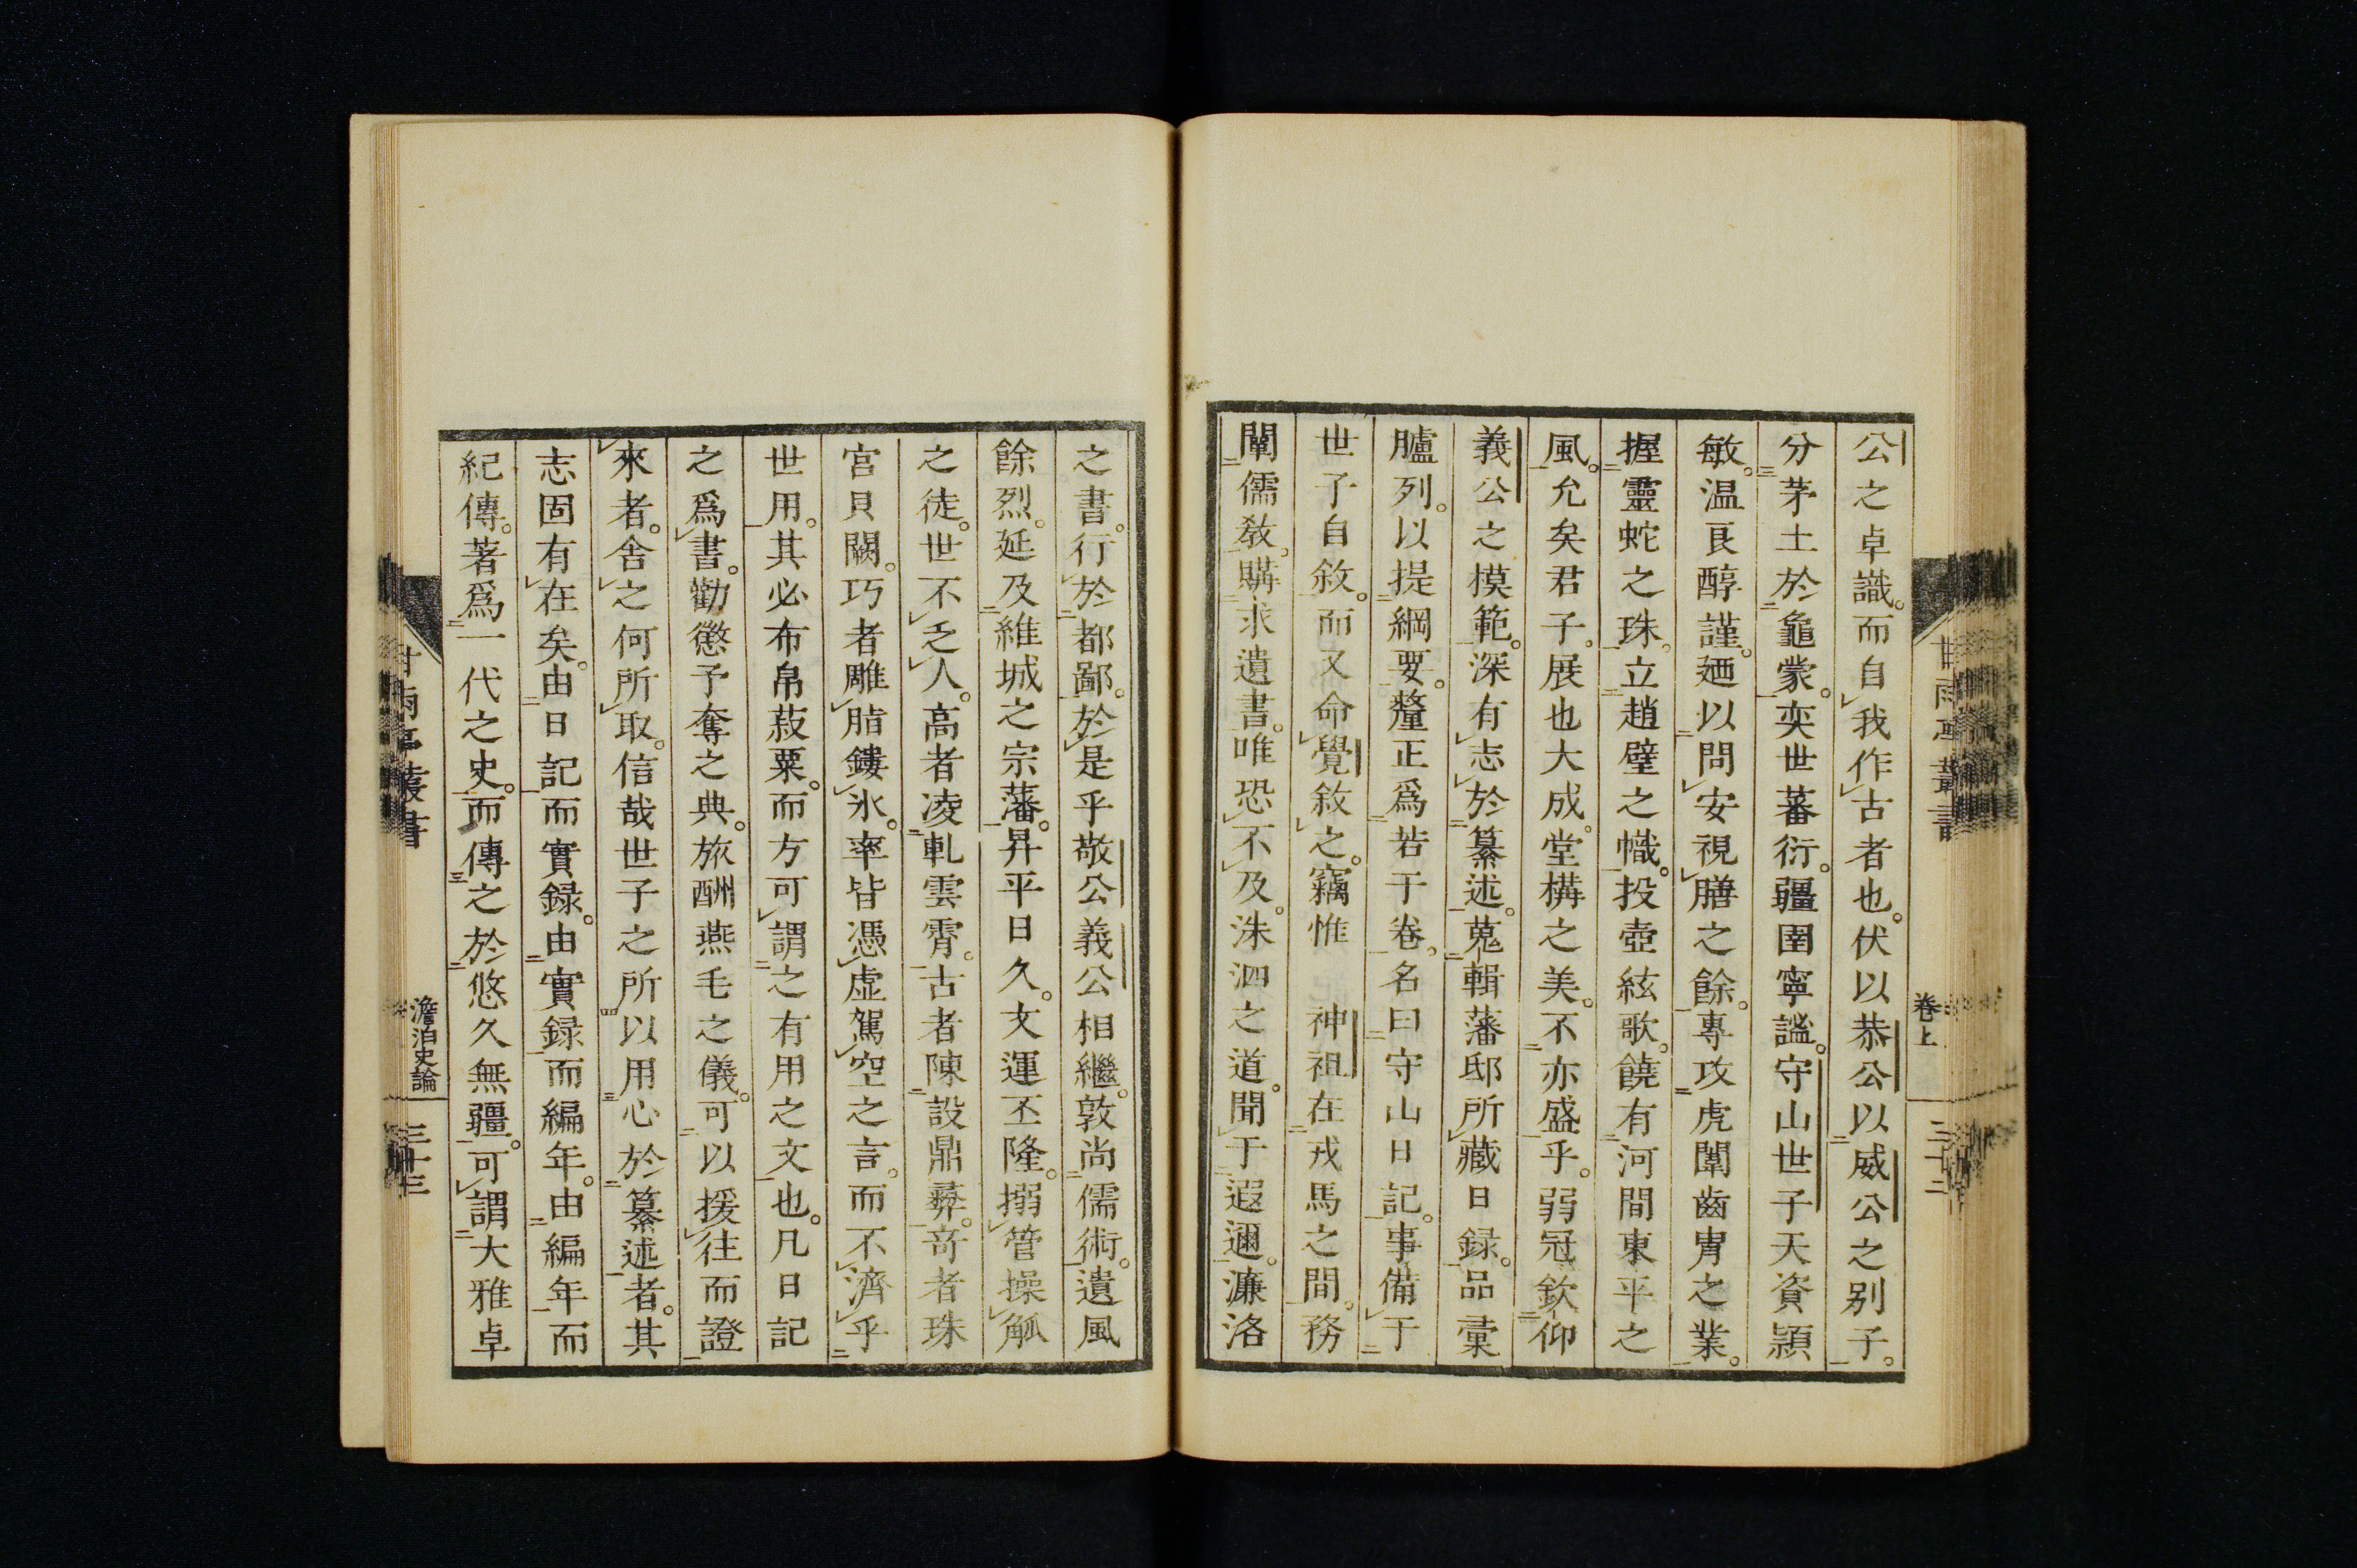 公之卓識。而自我作古者也。伏以恭公以威公之別子。
分茅土於龜蒙。奕世蕃衍。疆圉寧謐。守山世子天資穎
敏。温良醇謹。廼以問安視膳之餘。專攻虎闈齒冑之業。
握靈蛇之珠。立趙璧之幟。投壺絃歌。饒有河間東平之
風。允矣君子。展也大成。堂構之美。不亦盛乎。弱冠欽仰
義公之模範。深有志於纂述。蒐輯藩邸所藏日録。品彙
臚列。以提綱要。釐正爲若干卷。名曰守山日記。事備于
世子自敘。而又命覺敘之。竊惟 神祖在戎馬之間。務
闡儒教。購求遺書。唯恐不及。洙泗之道。聞于遐邇。濂洛
卷上
之書。行於都鄙。於是乎敬公義公相繼。敦尚儒術。遺風
餘烈。延及維城之宗藩。昇平日久。文運丕隆。搦管操觚
之徒。世不乏人。高者凌軋雲霄。古者陳設鼎彝。奇者珠
宮貝闕。巧者雕脂鏤氷。率皆憑虛駕空之言。而不濟乎
世用。其必布帛菽粟。而方可謂之有用之文也。凡日記
之爲書。勸懲予奪之典。旅酬燕毛之儀。可以援往而證
來者。舍之何所取。信哉世子之所以用心於纂述者。其
志固有在矣。由日記而實録。由實録而編年。由編年而
紀傳。著爲一代之史。而傳之於悠久無疆。可謂大雅卓
澹泊史論
三十三